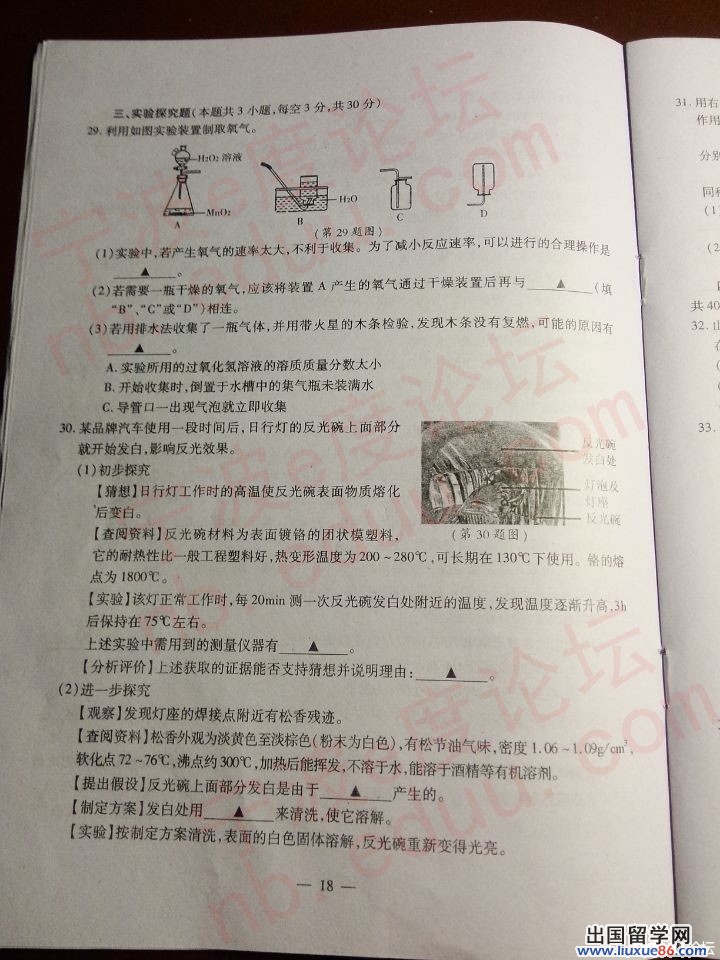 三、实验探究题(本题共3小题,每空3分,共30分)
29.利用如图实验装置制取氧气。
H₂O₂ 溶液
MnO₂
H₂O
A
B
C
D
(第29题图)
(1)实验中,若产生氧气的速率太大,不利于收集。为了减小反应速率,可以进行的合理操作是
▲。
(2)若需要一瓶干燥的氧气,应该将装置 A 产生的氧气通过干燥装置后再与▲(填
“B”、“C”或“D”)相连。
(3)若用排水法收集了一瓶气体,并用带火星的木条检验,发现木条没有复燃,可能的原因有
▲。
A. 实验所用的过氧化氢溶液的溶质质量分数太小
B. 开始收集时,倒置于水槽中的集气瓶未装满水
C. 导管口一出现气泡就立即收集
30. 某品牌汽车使用一段时间后,日行灯的反光碗上面部分
就开始发白,影响反光效果。
反光碗
发白处
灯泡及
灯座
反光碗
(第30题图)
(1)初步探究
【猜想】日行灯工作时的高温使反光碗表面物质熔化
后变白。
【查阅资料】反光碗材料为表面镀铬的团状模塑料,
它的耐热性比一般工程塑料好,热变形温度为200~280℃,可长期在130℃下使用。铬的熔
点为1800℃。
【实验】该灯正常工作时,每20min 测一次反光碗发白处附近的温度,发现温度逐渐升高,3h
后保持在75℃左右。
上述实验中需用到的测量仪器有▲。
【分析评价】上述获取的证据能否支持猜想并说明理由:▲。
(2)进一步探究
【观察】发现灯座的焊接点附近有松香残迹。
【查阅资料】松香外观为淡黄色至淡棕色(粉末为白色),有松节油气味,密度1.06~1.09g/cm³,
软化点72~76℃,沸点约300℃,加热后能挥发,不溶于水,能溶于酒精等有机溶剂。
【提出假设】反光碗上面部分发白是由于▲产生的。
【制定方案】发白处用▲来清洗,使它溶解。
【实验】按制定方案清洗,表面的白色固体溶解,反光碗重新变得光亮。
— 18 —
31. 用右
作用
分别
同种
(1)
(2)
共40
32.
33.
宁波e度论坛
nb.eduu.com
出国留学网
www.liuxue86.com